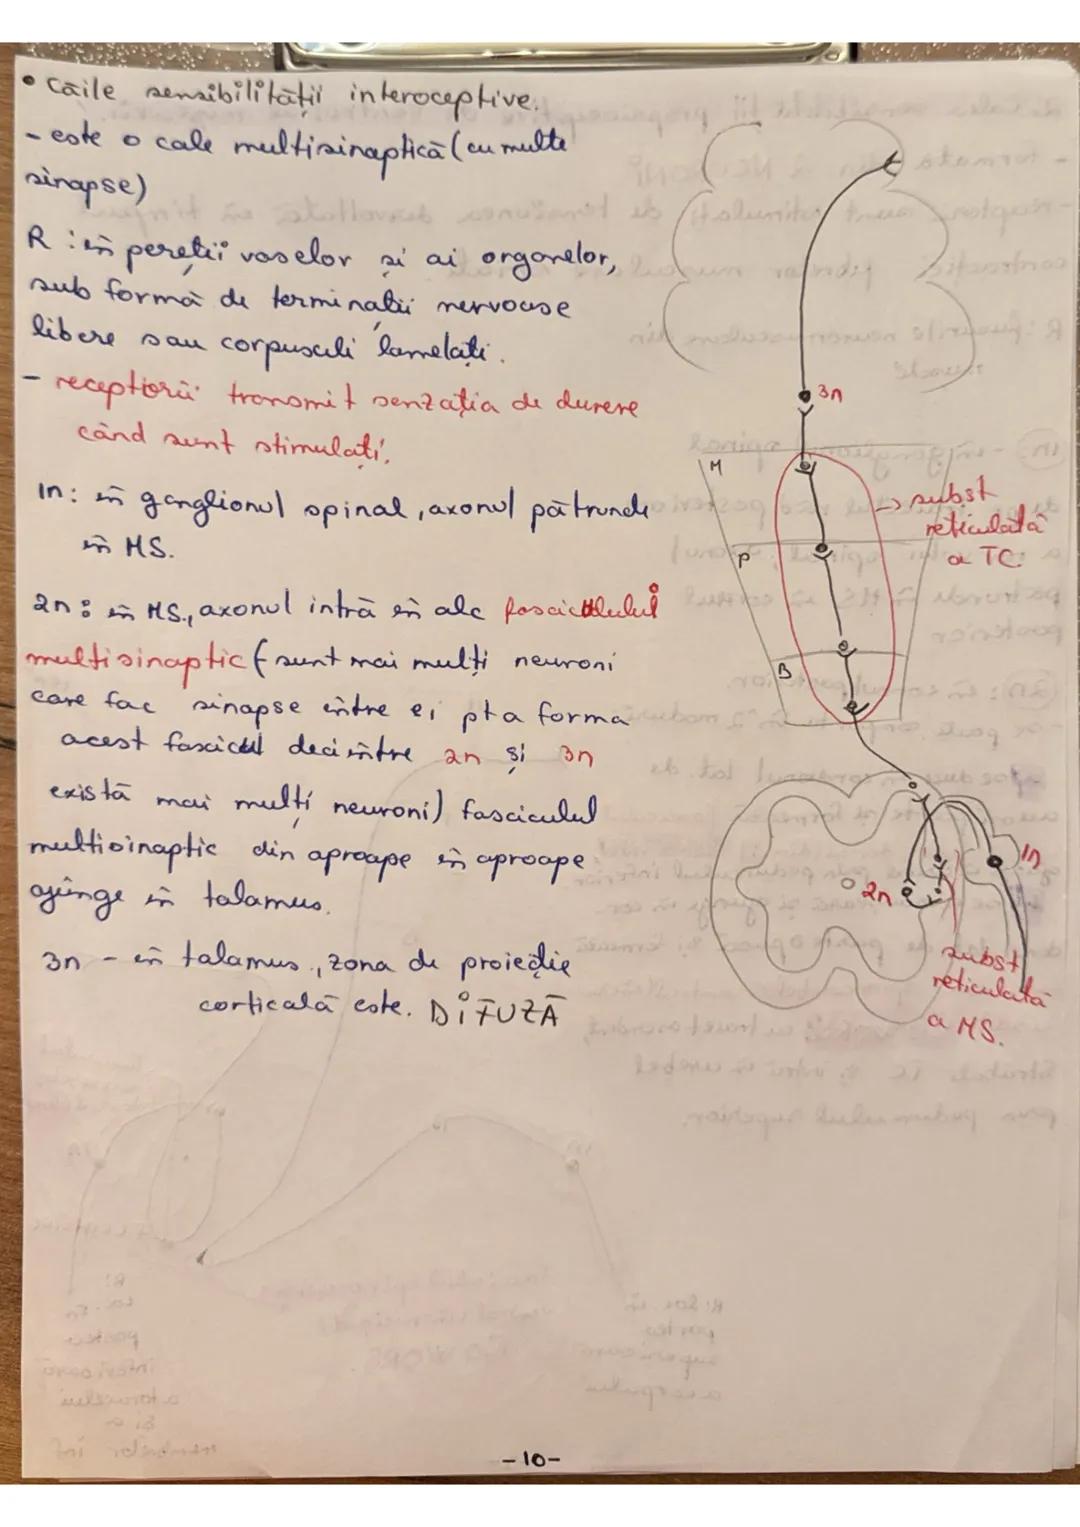 • Căile sensibilității interoceptive.
- este o cale multisinaptică (cu multe
sinapse)
R : în pereții vaselor și ai organelor,
sub formă de terminații nervoase
libere sau corpusculi lamelați.
- receptorii transmit senzația de durere
când sunt stimulați.
1n: în ganglionul spinal, axonul pătrunde
în MS.
2n: în MS., axonul intră în alc fasciculului
multisinaptic (sunt mai mulți neuroni
care fac sinapse între ei pta forma
acest fascicul deci între 2n și 3n
există mai mulți neuroni) fasciculul
multisinaptic din aproape în aproape
ajunge în talamus.
3n - în talamus, zona de proiecție
corticală este. DIFUZĂ
3n
M
→ subst
reticulată
a TC.
P
B
1n
2n
subst
reticulată
a MS.
- 10 -